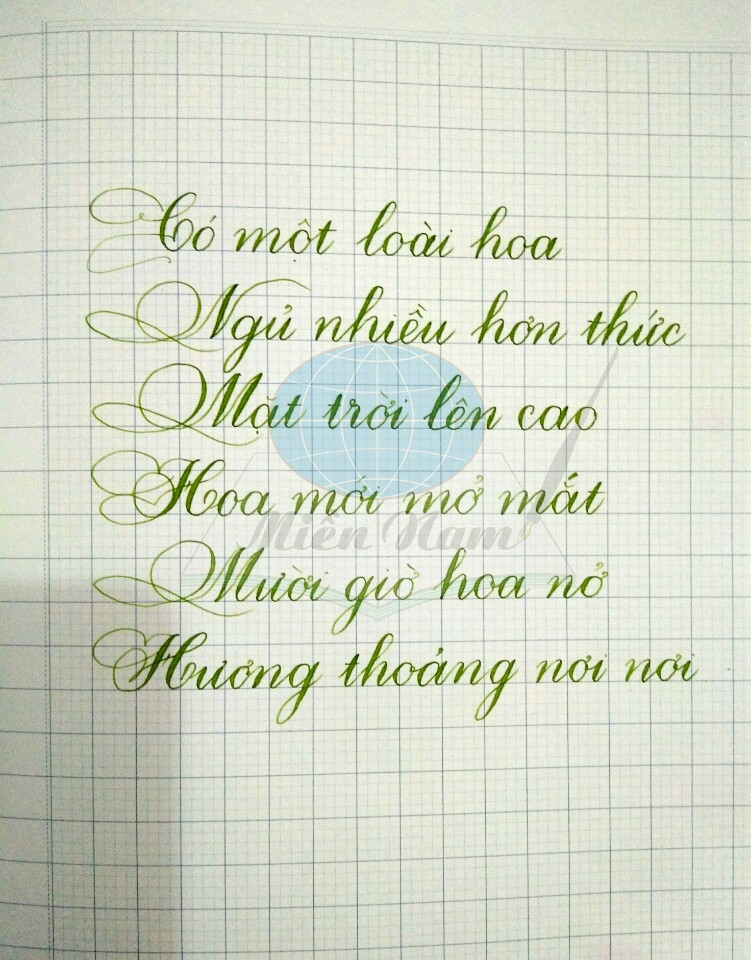 Có một loài hoa
Ngủ nhiều hơn thức
Mặt trời lên cao
Hoa mới mở mắt
Miền Nam
Mười giờ hoa nở
Hương thoảng nơi nơi